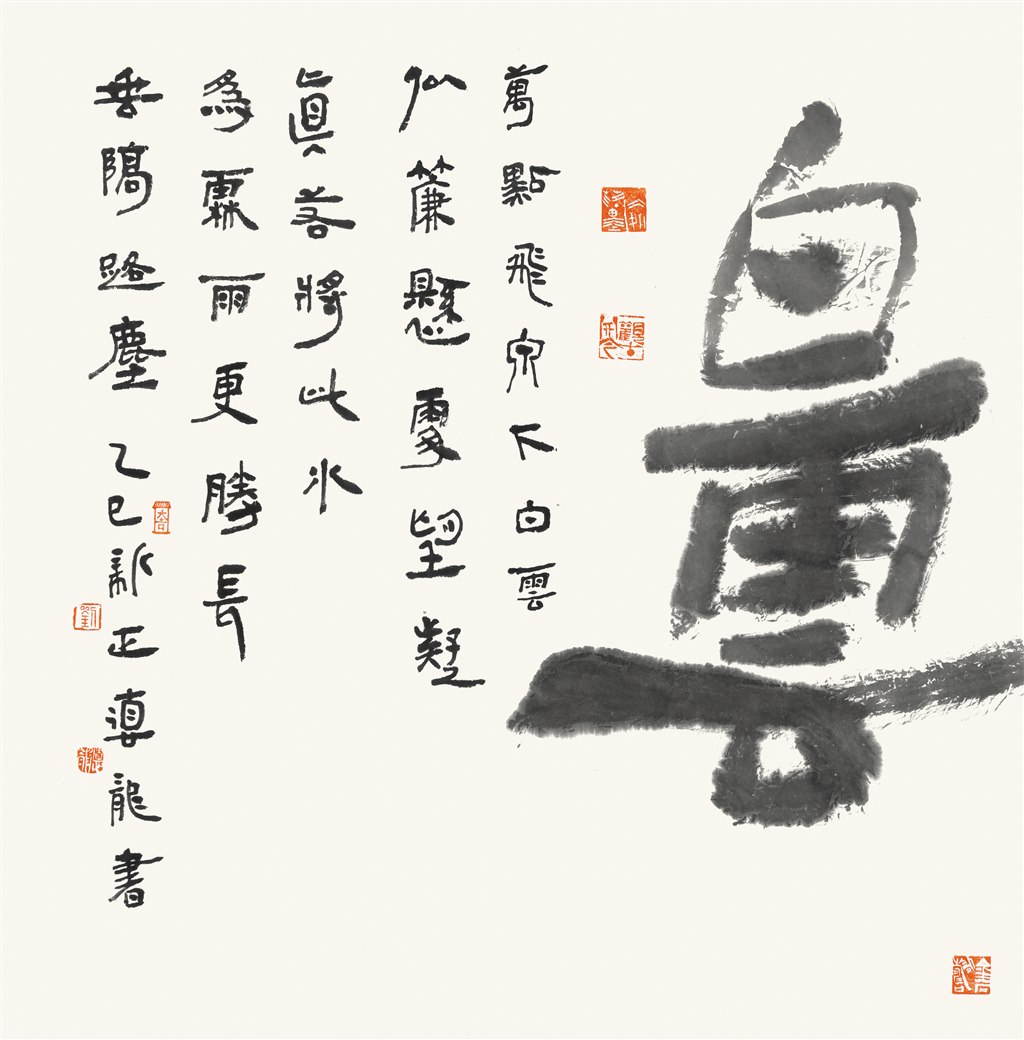 白雲
萬點飛泉下白雲
似簾懸處望疑
眞若將此水
為霖雨更勝長
垂隔路塵 乙巳新正德龍書